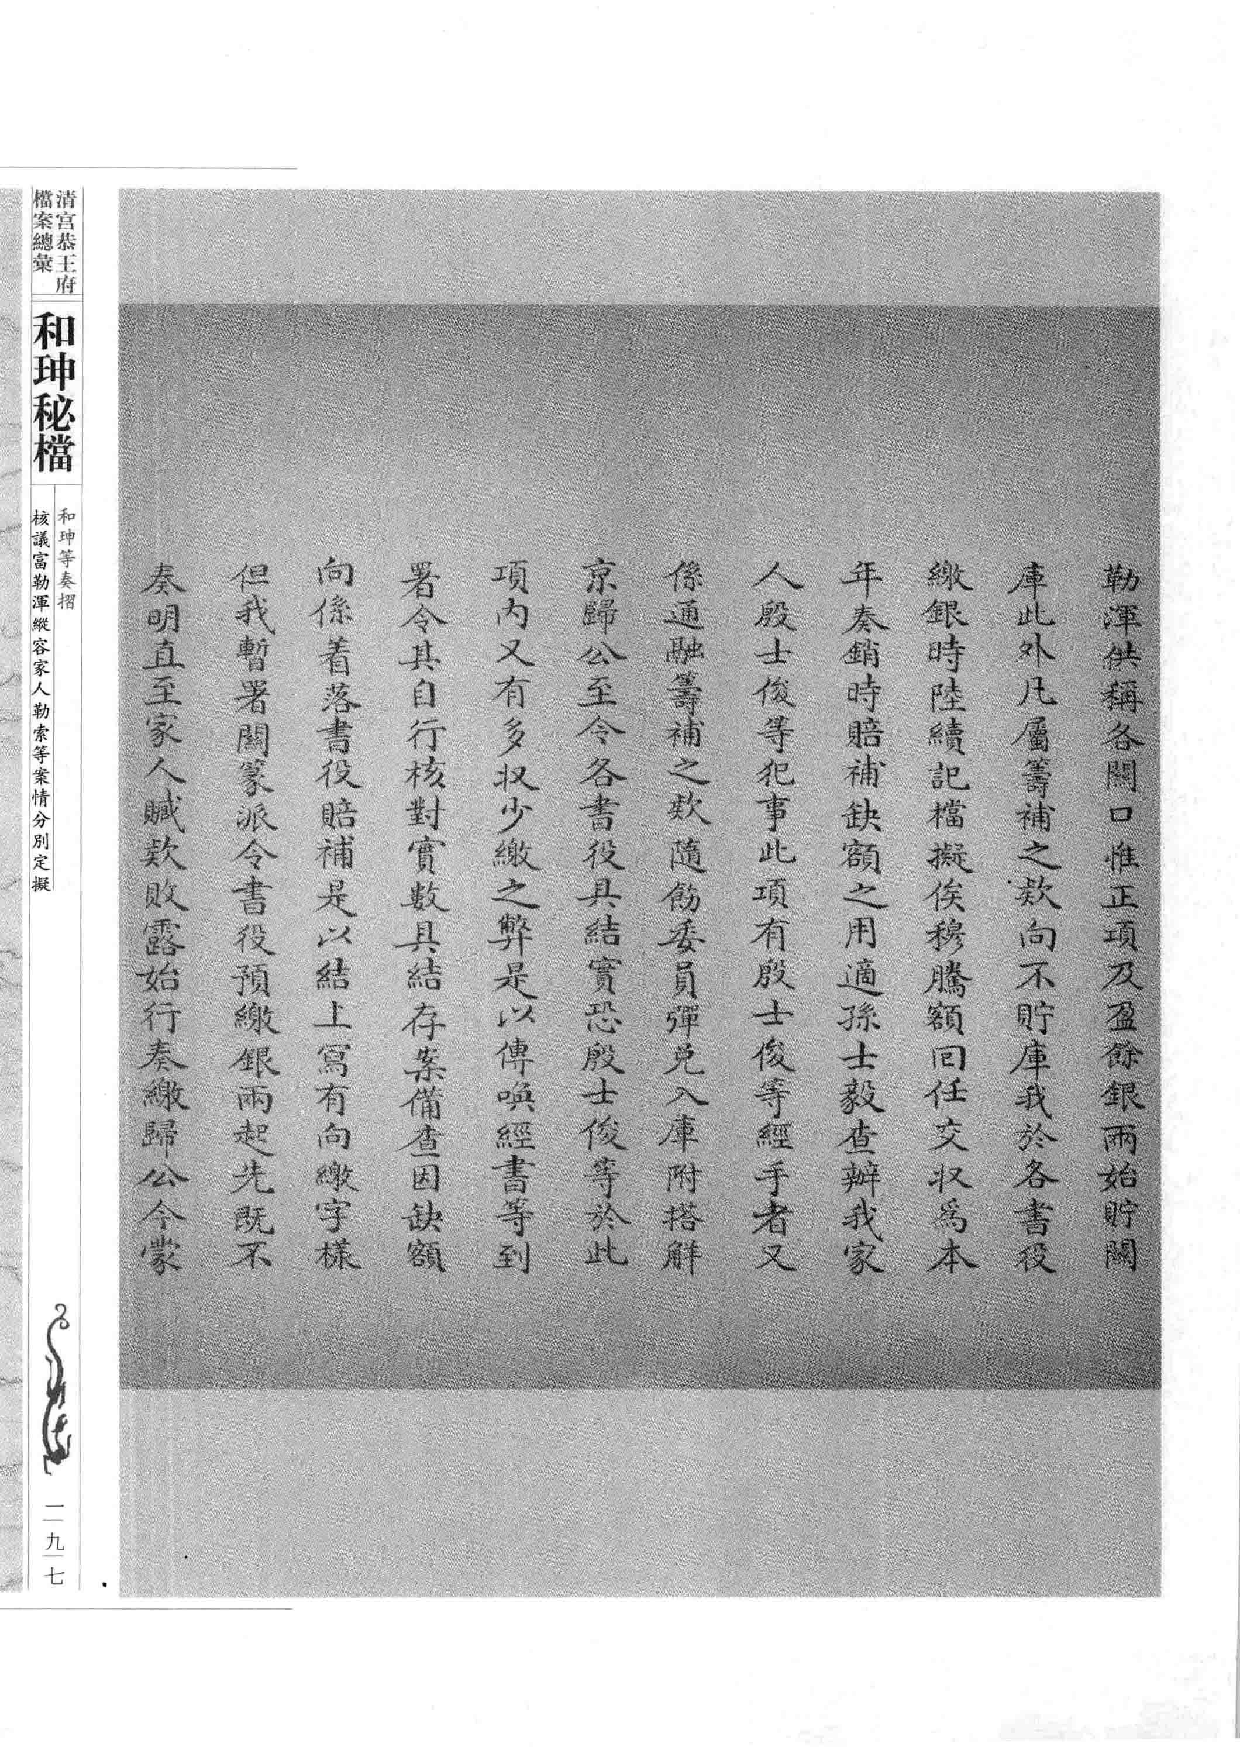 勒渾供稱各關口惟正項及盈餘銀兩始貯關
庫此外凡屬籌補之款向不貯庫我於各書役
繳銀時陸續記檔擬俟穆騰額回任交収為本
年奏銷時賠補缺額之用適孫士毅查辦我家
人殷士俊等犯事此項有殷士俊等經手者又
係通融籌補之款隨飭委員彈兌入庫附搭解
京歸公至令各書役具結實恐殷士俊等於此
項內又有多収少繳之弊是以傳喚經書等到
署令其自行核對實數具結存案備查因缺額
向係着落書役賠補是以結上寫有向繳字樣
但我暫署關篆派令書役預繳銀兩起先既不
奏明直至家人贓款敗露始行奏繳歸公今蒙
清宫恭王府
檔案總彙
和珅秘檔
和珅等奏摺
核議富勒渾縱容家人勒索等案情分別定擬
一九七